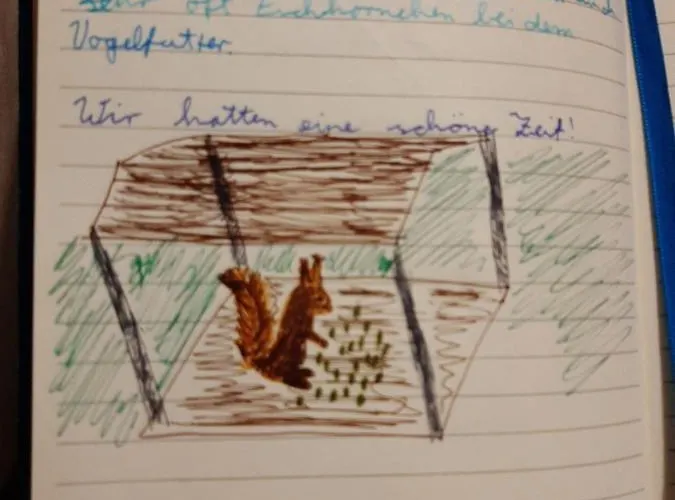 sehr oft Eichhörnchen bei dem
Vogelfutter.
Wir hatten eine schöne Zeit!